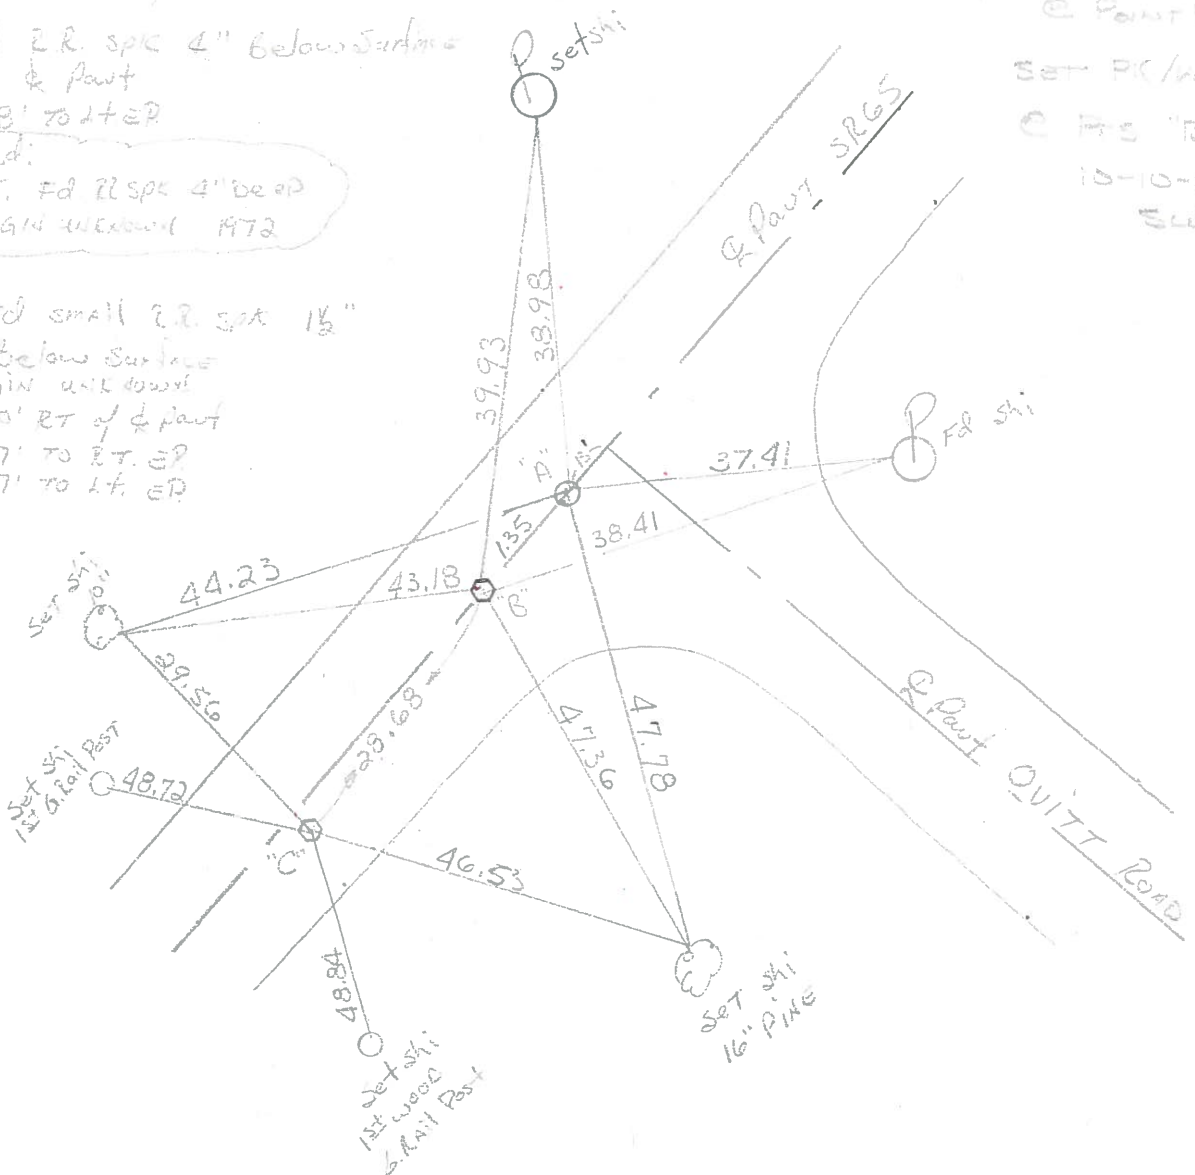 R.R. spk 4" Below Surface
℄ Pavt
8' TO Lt EP
Fd RR spk 4" Deep
unknown 1972
small R.R. spk 1½"
below Surface
unknown
RT of ℄ Pavt
7' TO RT. EP
7' TO Lt. EP
@ Point
Set PK/
@ Pts
10-10-
P
set shi
SR 65
℄ Pavt
39.93
38.98
P
Fd Shi
37.41
"A"
1.35
38.41
44.23
43.18
"B"
Set Shi
29.56
28.68
47.36
47.78
℄ Pavt QUITT ROAD
Set Shi
1st G.Rail Post
48.72
"C"
46.53
48.84
Set Shi
16" PINE
Set Shi
1st wood
G.Rail Post